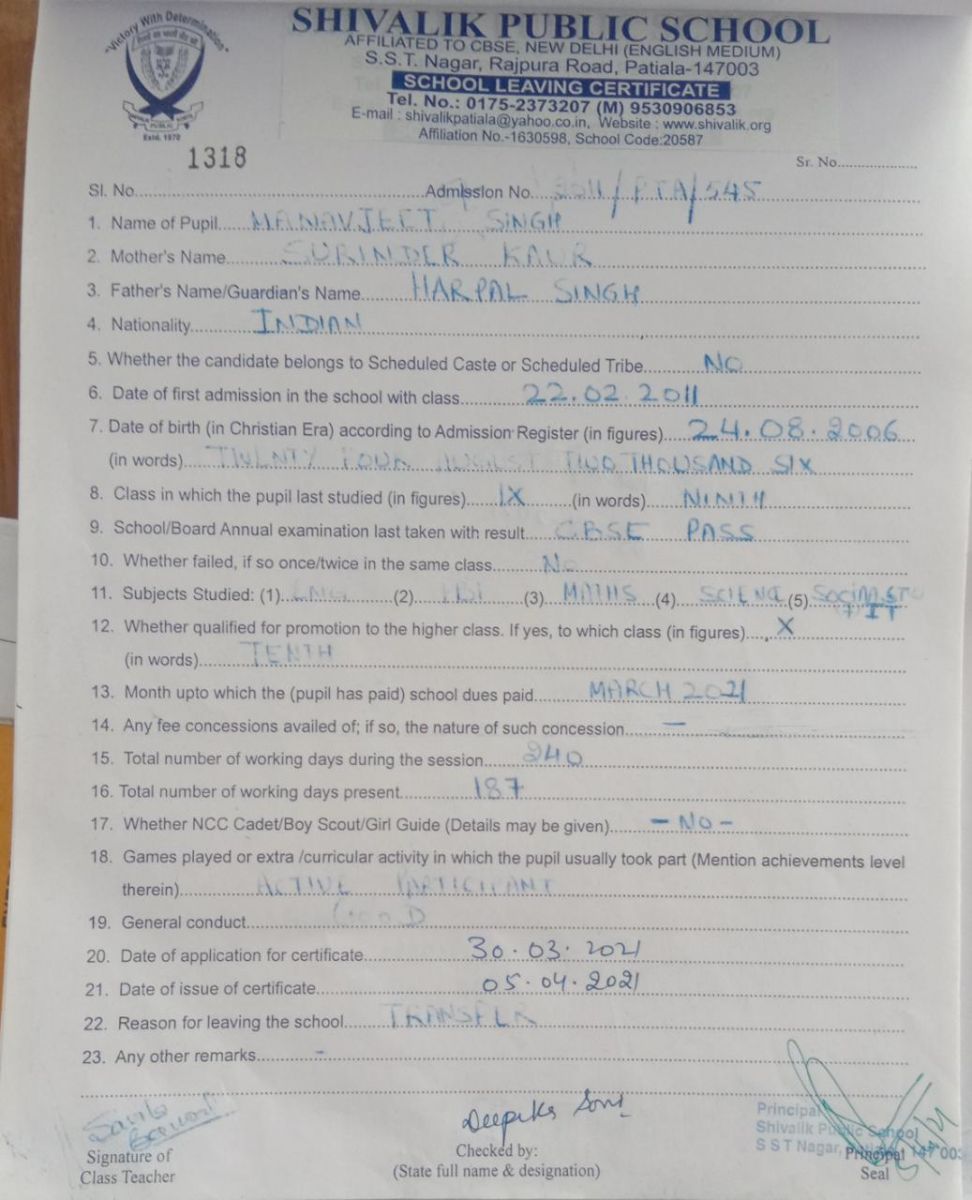 "Victory With Determination"
SHIVALIK PUBLIC SCHOOL
AFFILIATED TO CBSE, NEW DELHI (ENGLISH MEDIUM)
S.S.T. Nagar, Rajpura Road, Patiala-147003
SCHOOL LEAVING CERTIFICATE
Tel. No.: 0175-2373207 (M) 9530906853
E-mail : shivalikpatiala@yahoo.co.in, Website : www.shivalik.org
Affiliation No.-1630598, School Code:20587
Estd. 1970
1318
Sr. No.
Sl. No. Admission No. 2011/PTA/545
1. Name of Pupil MANAVJEET SINGH
2. Mother's Name SURINDER KAUR
3. Father's Name/Guardian's Name HARPAL SINGH
4. Nationality INDIAN
5. Whether the candidate belongs to Scheduled Caste or Scheduled Tribe NO
6. Date of first admission in the school with class 22.02.2011
7. Date of birth (in Christian Era) according to Admission Register (in figures) 24.08.2006
(in words) TWENTY FOUR AUGUST TWO THOUSAND SIX
8. Class in which the pupil last studied (in figures) IX (in words) NINTH
9. School/Board Annual examination last taken with result CBSE PASS
10. Whether failed, if so once/twice in the same class No
11. Subjects Studied: (1) ENG (2) PBI (3) MATHS (4) SCIENCE (5) SOCIAL ST
IT
12. Whether qualified for promotion to the higher class. If yes, to which class (in figures) X
(in words) TENTH
13. Month upto which the (pupil has paid) school dues paid MARCH 2021
14. Any fee concessions availed of; if so, the nature of such concession —
15. Total number of working days during the session 240
16. Total number of working days present 187
17. Whether NCC Cadet/Boy Scout/Girl Guide (Details may be given) - No -
18. Games played or extra /curricular activity in which the pupil usually took part (Mention achievements level
therein) ACTIVE PARTICIPANT
19. General conduct GOOD
20. Date of application for certificate 30.03.2021
21. Date of issue of certificate 05.04.2021
22. Reason for leaving the school TRANSFER
23. Any other remarks -
Deepika Soni
Principal
Shivalik Public School
S S T Nagar, 147003
Signature of
Class Teacher
Checked by:
(State full name & designation)
Principal
Seal